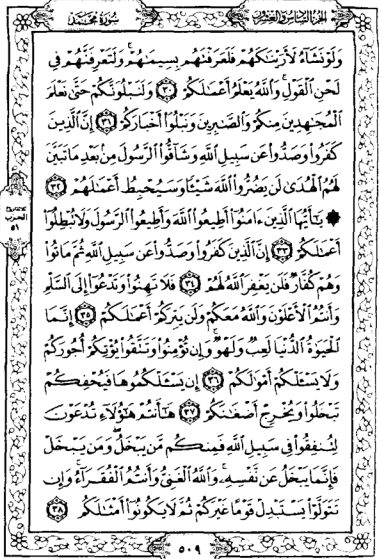 سُورَةُ مُحَمَّد
الجزء السادس والعشرون
وَلَوْ نَشَآءُ لَأَرَيْنَٰكَهُمْ فَلَعَرَفْتَهُم بِسِيمَٰهُمْ ۚ وَلَتَعْرِفَنَّهُمْ فِى
لَحْنِ ٱلْقَوْلِ ۚ وَٱللَّهُ يَعْلَمُ أَعْمَٰلَكُمْ ٣٠ وَلَنَبْلُوَنَّكُمْ حَتَّىٰ نَعْلَمَ
ٱلْمُجَٰهِدِينَ مِنكُمْ وَٱلصَّٰبِرِينَ وَنَبْلُوَا۟ أَخْبَارَكُمْ ٣١ إِنَّ ٱلَّذِينَ
كَفَرُوا۟ وَصَدُّوا۟ عَن سَبِيلِ ٱللَّهِ وَشَآقُّوا۟ ٱلرَّسُولَ مِنۢ بَعْدِ مَا تَبَيَّنَ
لَهُمُ ٱلْهُدَىٰ لَن يَضُرُّوا۟ ٱللَّهَ شَيْـًٔا وَسَيُحْبِطُ أَعْمَٰلَهُمْ ٣٢
يَٰٓأَيُّهَا ٱلَّذِينَ ءَامَنُوٓا۟ أَطِيعُوا۟ ٱللَّهَ وَأَطِيعُوا۟ ٱلرَّسُولَ وَلَا تُبْطِلُوٓا۟
أَعْمَٰلَكُمْ ٣٣ إِنَّ ٱلَّذِينَ كَفَرُوا۟ وَصَدُّوا۟ عَن سَبِيلِ ٱللَّهِ ثُمَّ مَاتُوا۟
وَهُمْ كُفَّارٌ فَلَن يَغْفِرَ ٱللَّهُ لَهُمْ ٣٤ فَلَا تَهِنُوا۟ وَتَدْعُوٓا۟ إِلَى ٱلسَّلْمِ
وَأَنتُمُ ٱلْأَعْلَوْنَ وَٱللَّهُ مَعَكُمْ وَلَن يَتِرَكُمْ أَعْمَٰلَكُمْ ٣٥ إِنَّمَا
ٱلْحَيَوٰةُ ٱلدُّنْيَا لَعِبٌ وَلَهْوٌ ۚ وَإِن تُؤْمِنُوا۟ وَتَتَّقُوا۟ يُؤْتِكُمْ أُجُورَكُمْ
وَلَا يَسْـَٔلْكُمْ أَمْوَٰلَكُمْ ٣٦ إِن يَسْـَٔلْكُمُوهَا فَيُحْفِكُمْ
تَبْخَلُوا۟ وَيُخْرِجْ أَضْغَٰنَكُمْ ٣٧ هَٰٓأَنتُمْ هَٰٓؤُلَآءِ تُدْعَوْنَ
لِتُنفِقُوا۟ فِى سَبِيلِ ٱللَّهِ فَمِنكُم مَّن يَبْخَلُ ۖ وَمَن يَبْخَلْ
فَإِنَّمَا يَبْخَلُ عَن نَّفْسِهِۦ ۚ وَٱللَّهُ ٱلْغَنِىُّ وَأَنتُمُ ٱلْفُقَرَآءُ ۚ وَإِن
تَتَوَلَّوْا۟ يَسْتَبْدِلْ قَوْمًا غَيْرَكُمْ ثُمَّ لَا يَكُونُوٓا۟ أَمْثَٰلَكُم ٣٨
الحزب
٥١
٥٠٩